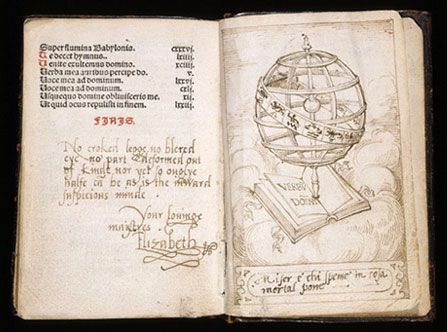 Super flumina Babylonis. cxxxvj.
Te decet hymnus. lxiiij.
Venite exultemus domino. xciiij.
Verba mea auribus percipe do. v.
Voce mea ad dominum. lxxvj.
Voce mea ad dominum. cxlj.
Usquequo domine oblivisceris me. xij.
Ut quid deus repulisti in finem. lxxiij.
FINIS.
No croked legge, no blered
eye, no part deformed out
of kinde, nor yet so ouglye
halfe cā be as is the inward
suspicious minde.
Your lovinge
maistres
Elizabeth
VERBV
DOMI
Miser è chi speme in cosa
mortal pone